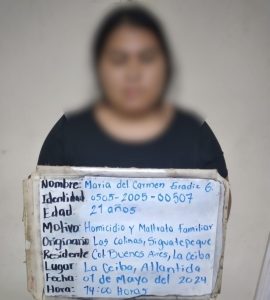 Nombre: Maria del Carmen Eradiz G.
Identidad 0505-2005-00507
Edad 21 años
Motivo: Homicidio y Maltrato Familiar
Originario Las Colinas, Siguatepeque
Residente Col Buenos Aires, La Ceiba
Lugar La Ceiba, Atlantida
Fecha: 01 de Mayo del 2024
Hora: 14:00 Horas